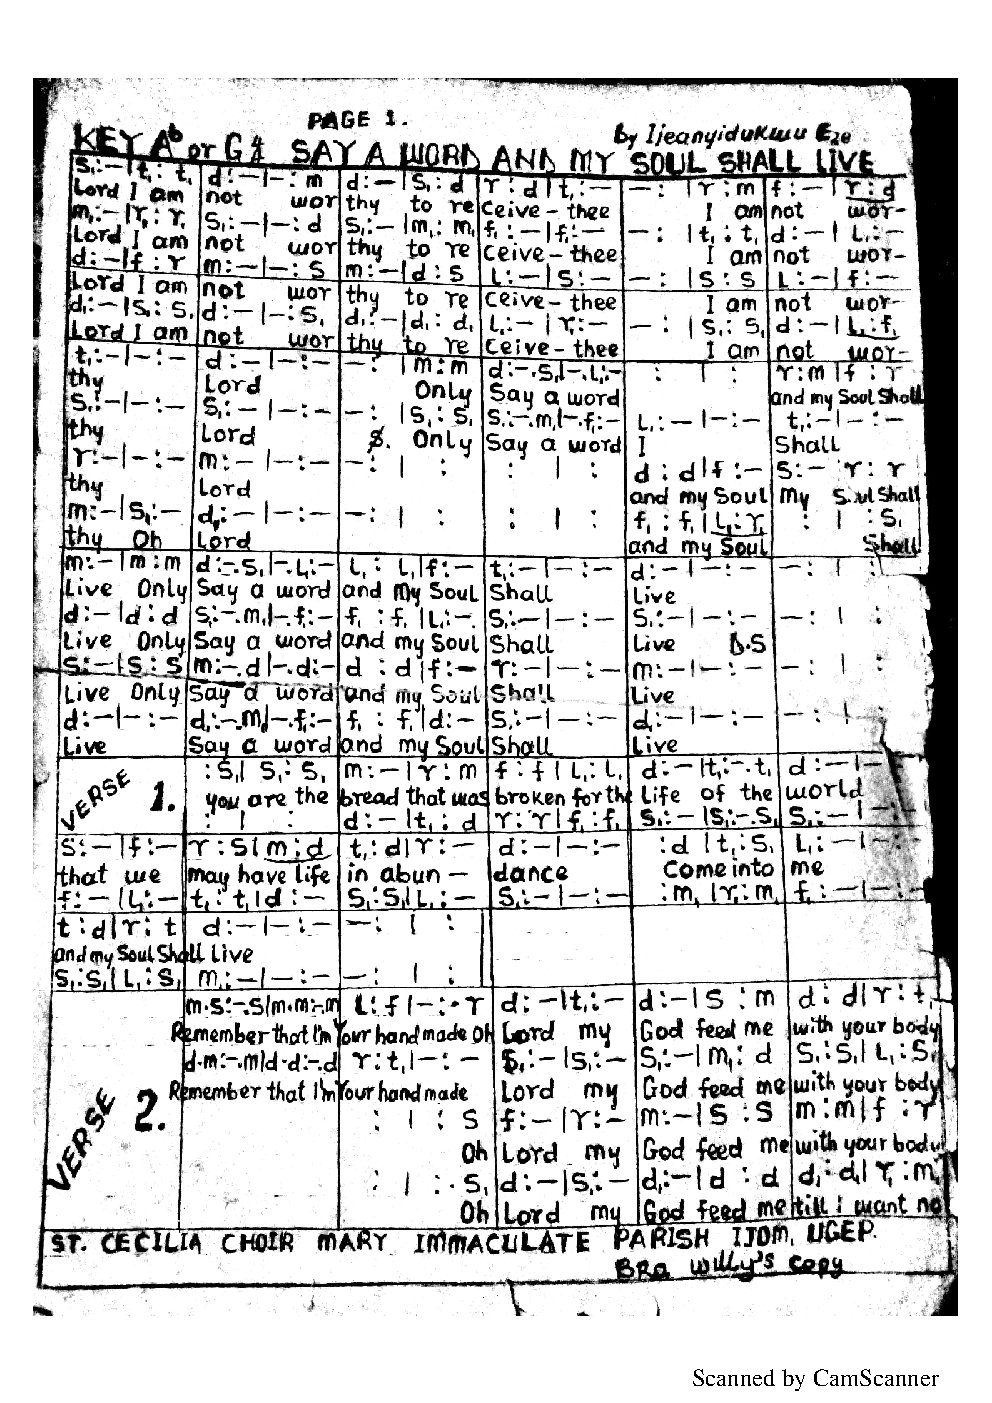 PAGE 1.
KEY Ab or G# SAY A WORD AND MY SOUL SHALL LIVE by Ijeanyidukwu Eze
s,:–|t,:t, d:–|–:m d:–|s,:d r:d|t,:– –:|r:m f:–|r:d
Lord I am not wor thy to re ceive – thee I am not wor-
m,:–|r,:r, s,:–|–:d s,:–|m,:m, f,:–|f,:– –:|t,:t, d:–|l,:–
Lord I am not wor thy to re ceive – thee I am not wor-
d:–|f:r m:–|–:s m:–|d:s l:–|s:– –:|s:s l:–|f:–
Lord I am not wor thy to re ceive – thee I am not wor-
d,:–|s,:s, d:–|–:s, d,:–|d,:d, l,:–|r,:– –:|s,:s, d:–|l,:f,
Lord I am not wor thy to re ceive – thee I am not wor-
t,:–|–:– d:–|–:– –:|m:m d:–.s,|–.l,:– :|: r:m|f:r
thy Lord Only Say a word and my Soul Shall
s,:–|–:– s,:–|–:– –:|s,:s, s,:–.m,|–.f,:– l,:–|–:– t,:–|–:–
thy Lord S. Only Say a word I Shall
r:–|–:– m:–|–:– –:|: :|: d:d|f:– s:– r:r
thy Lord and my Soul my Soul Shall
m:–|s,:– d,:–|–:– –:|: :|: f,:f,|l,:r, :|:s,
thy Oh Lord and my Soul Shall
m:–|m:m d:–.s,|–.l,:– l,:l,|f:– t,:–|–:– d:–|–:– –:|:
Live Only Say a word and my Soul Shall Live
d:–|d:d s,:–.m,|–.f,:– f,:f,|l,:– s,:–|–:– s,:–|–:– –:|:
Live Only Say a word and my Soul Shall Live D.S
s:–|s:s m:–.d|–.d:– d:d|f:– r:–|–:– m:–|–:– –:|:
Live Only Say a word and my Soul Shall Live
d:–|–:– d,:–.m,|–.f,:– f,:f,|d:– s,:–|–:– d,:–|–:– –:|:
Live Say a word and my Soul Shall Live
VERSE 1.
:s,|s,:s, m:–|r:m f:f|l,:l, d:–|t,:–.t, d:–|–
you are the bread that was broken for the Life of the world
:|: d:–|t,:d r:r|f,:f, s,:–|s,:–.s, s,:–|–
s:–|f:– r:s|m:d t,:d|r:– d:–|–:– :d|t,:s, l,:–|–:–
that we may have life in abun – dance Come into me
f:–|l,:– t,:t,|d:– s,:s,|l,:– s,:–|–:– :m,|r,:m, f,:–|–:–
t:d|r:t d:–|–:– –:|:
and my Soul Shall Live
s,:s,|l,:s, m,:–|–:– –:|:
VERSE 2.
m.s:–.s|m.m:–.m l:f|–:.r d:–|t,:– d:–|s:m d:d|r:t,
Remember that I'm Your hand made Oh Lord my God feed me with your body
d.m:–.m|d.d:–.d r:t,|–:– s,:–|s,:– s,:–|m,:d s,:s,|l,:s,
Remember that I'm Your hand made Lord my God feed me with your body
:|:s f:–|r:– m:–|s:s m:m|f:r
Oh Lord my God feed me with your body
:|:.s, d:–|s,:– d,:–|d:d d,:d,|r,:m,
Oh Lord my God feed me till i want no
ST. CECILIA CHOIR MARY IMMACULATE PARISH IJOM, UGEP.
BRa Willy's copy
Scanned by CamScanner